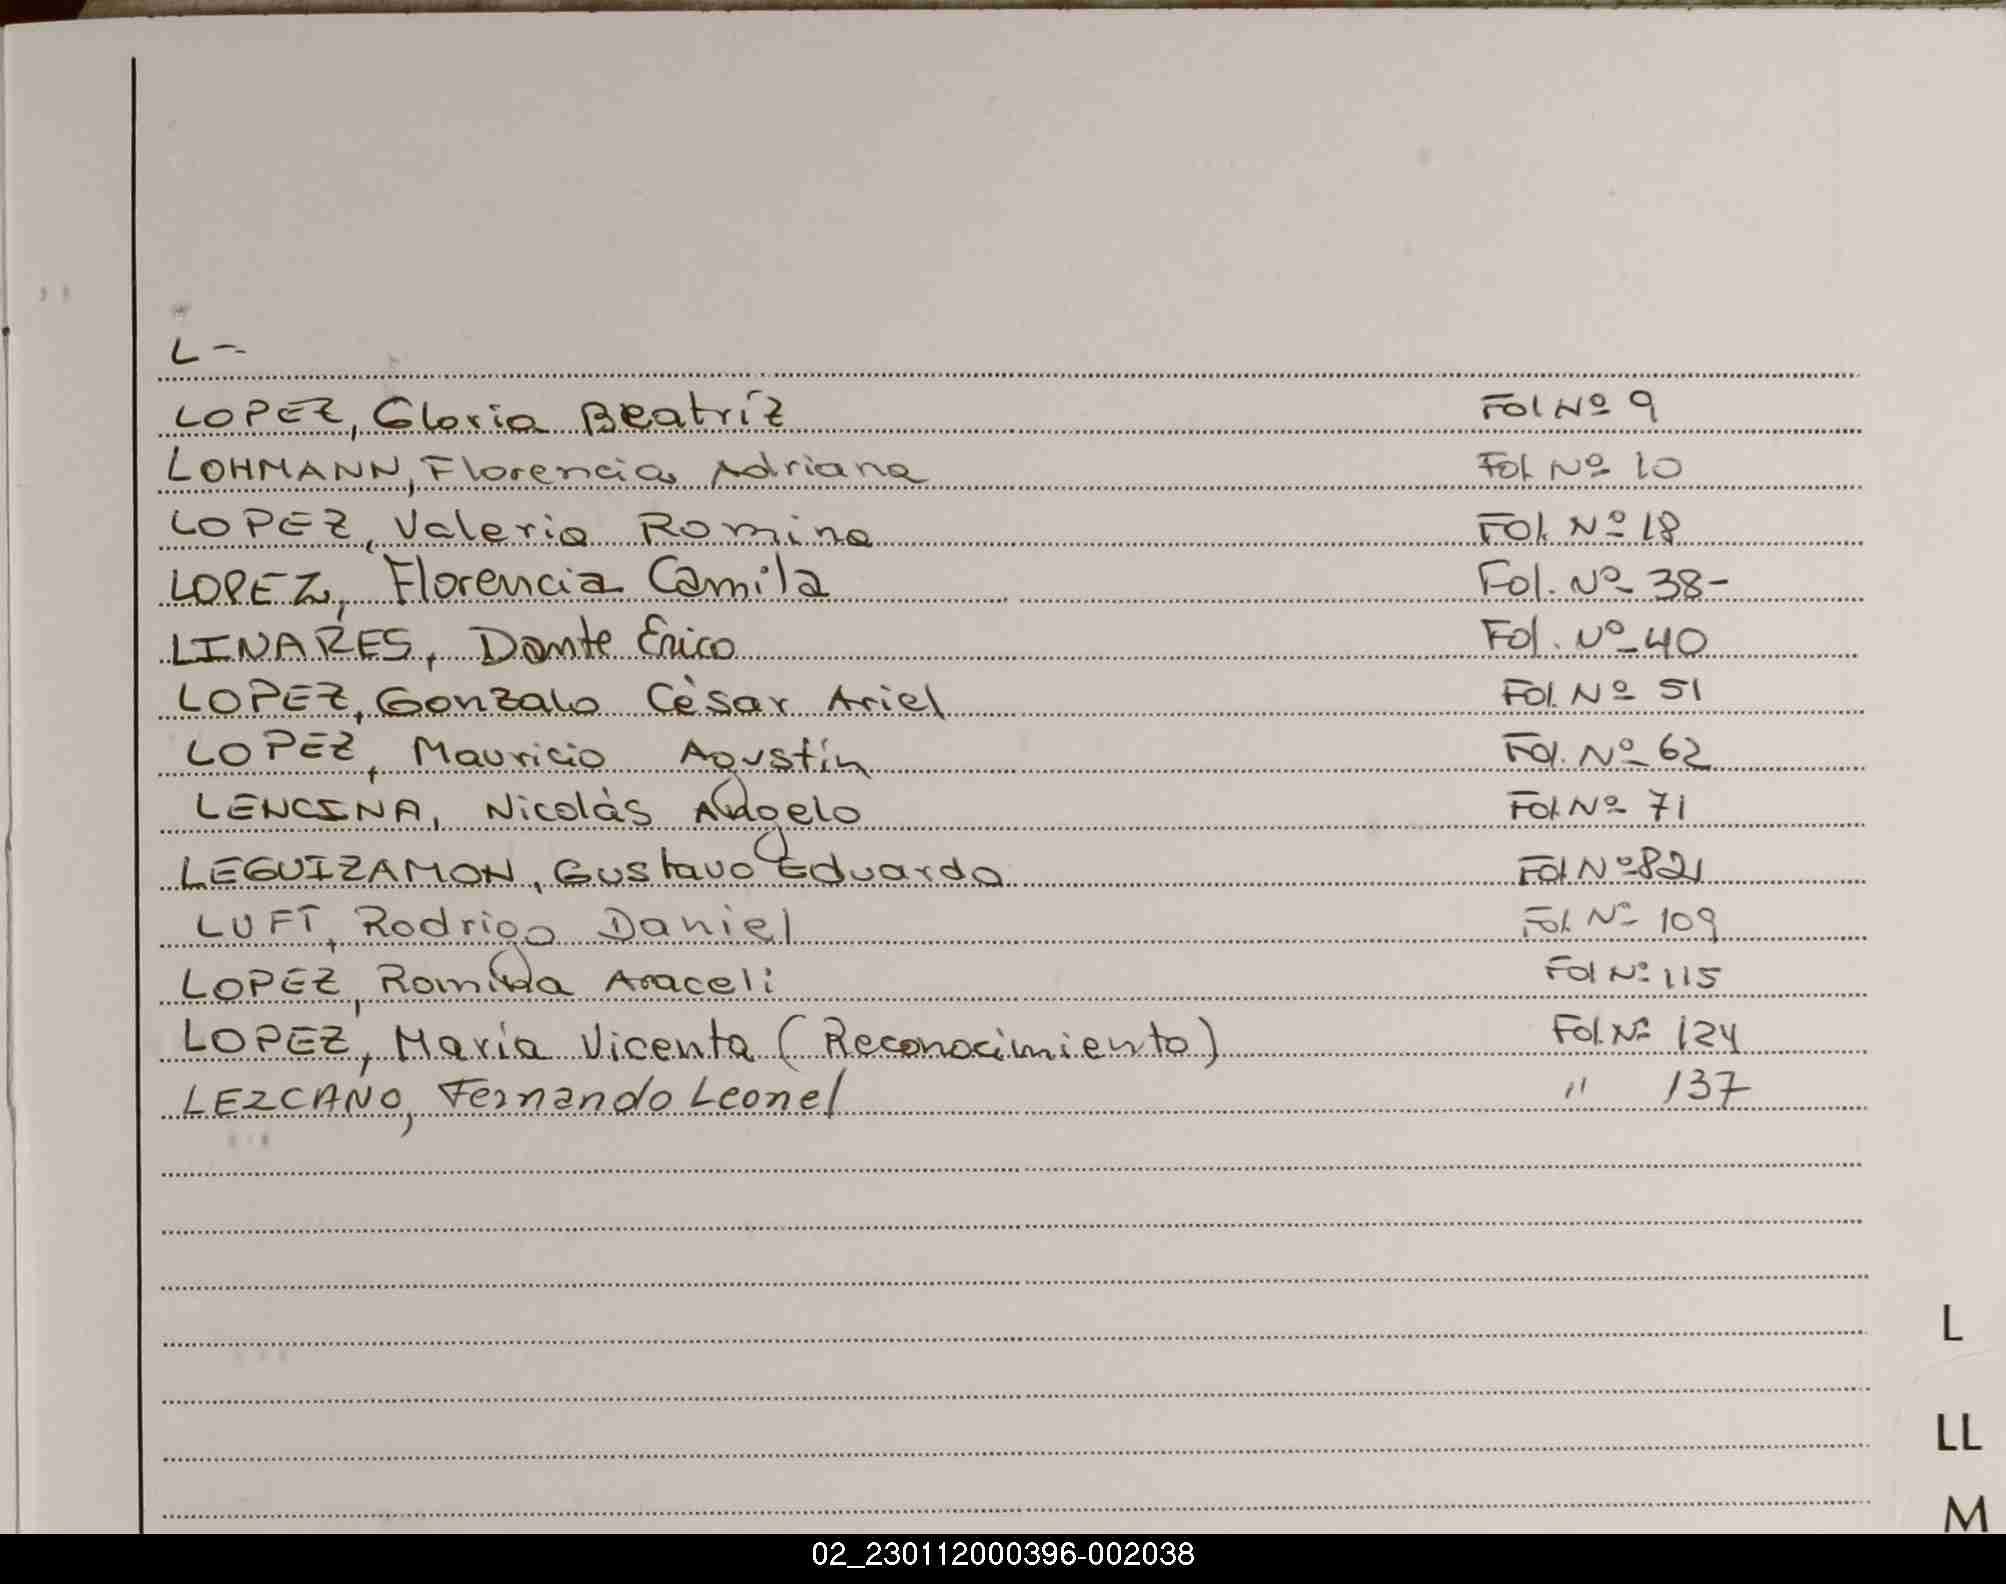 L-
LOPEZ, Gloria Beatríz Fol Nº 9
LOHMANN, Florencia Adriana Fol. Nº 10
LOPEZ, Valeria Romina Fol. Nº 18
LOPEZ, Florencia Camila Fol. Nº 38-
LINARES, Dante Erico Fol. Nº 40
LOPEZ, Gonzalo Cèsar Ariel Fol. Nº 51
LOPEZ, Mauricio Agustín Fol. Nº 62
LENCINA, Nicolás Angelo Fol. Nº 71
LEGUIZAMON, Gustavo Eduardo Fol. Nº
LUFT, Rodrigo Daniel Fol. Nº 109
LOPEZ, Romina Araceli Fol Nº 115
LOPEZ, María Vicenta (Reconocimiento) Fol. Nº 124
LEZCANO, Fernando Leonel " 137
L
LL
M
02_230112000396-002038